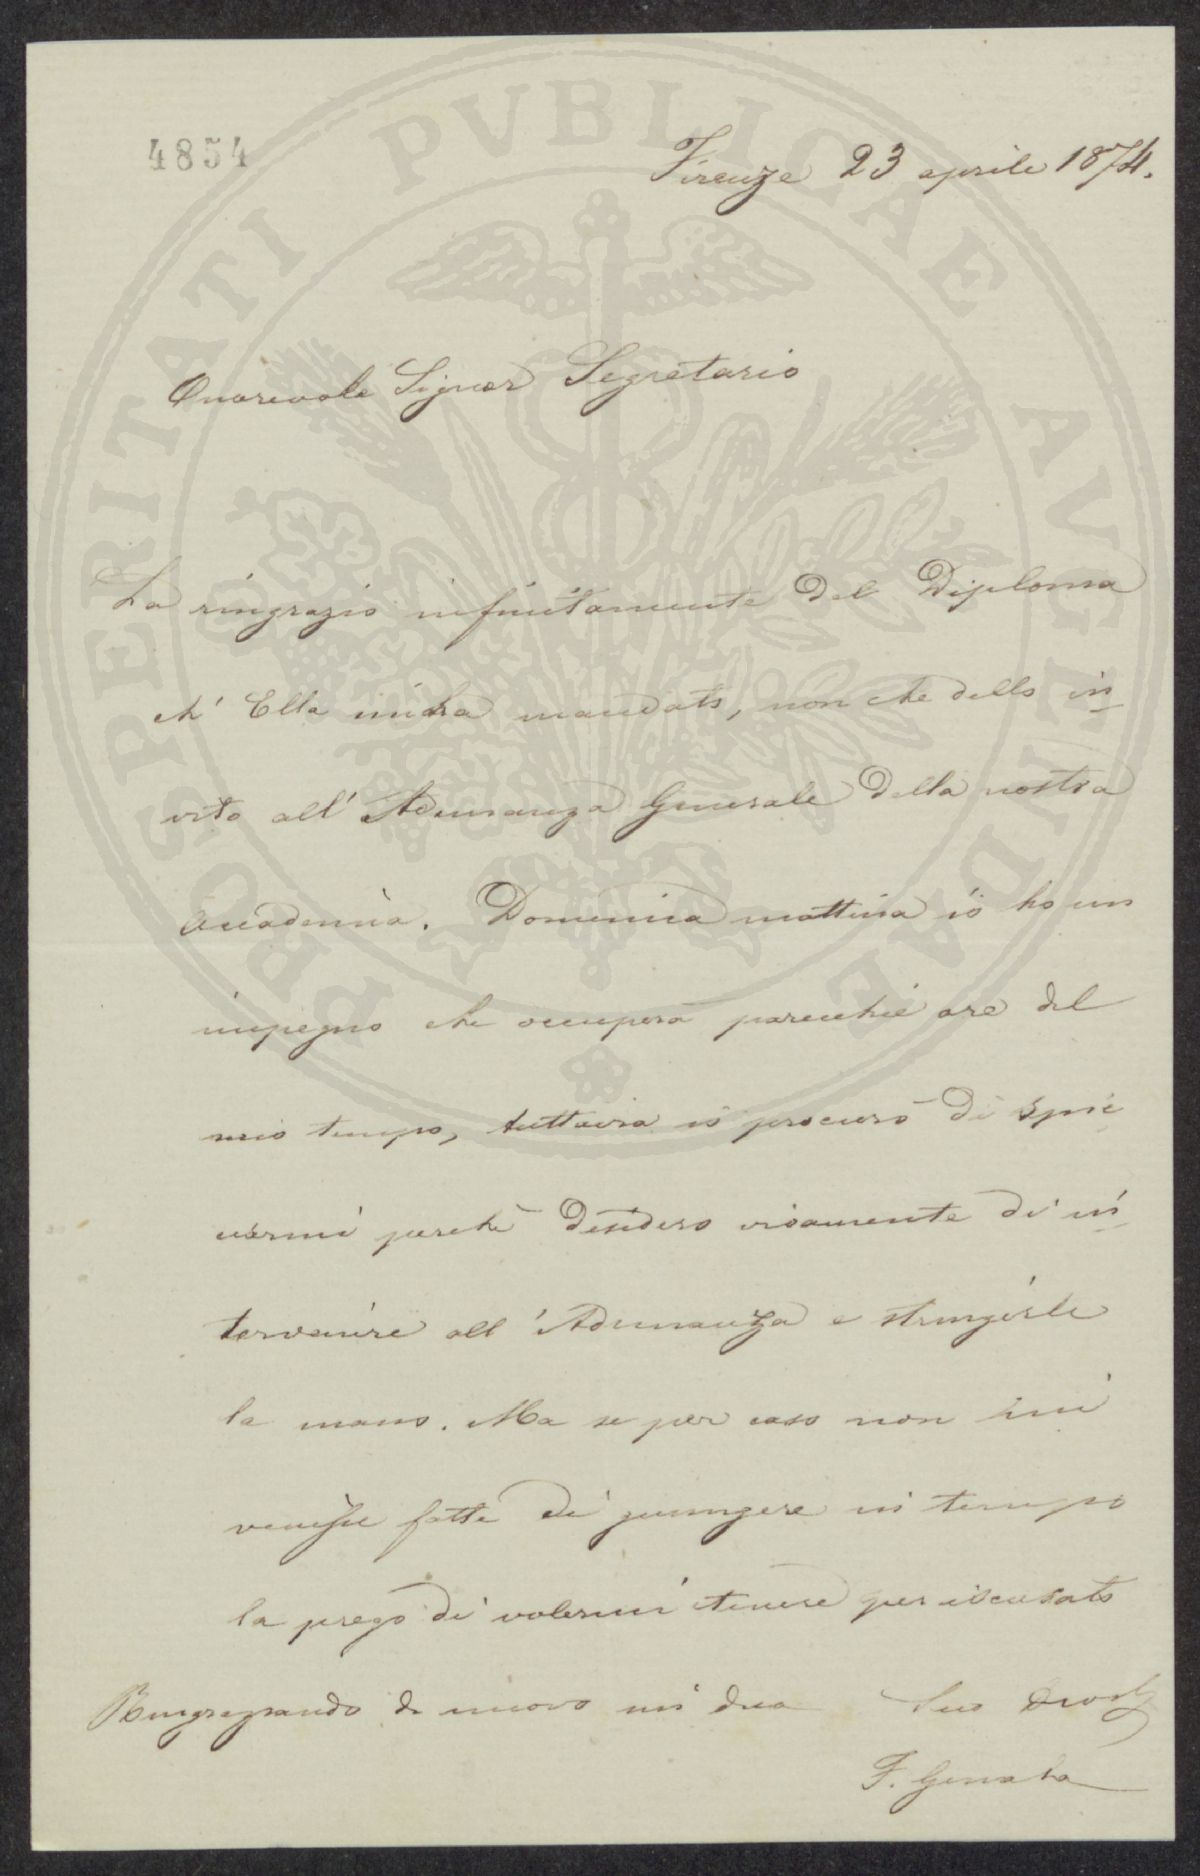 PROSPERITATI PVBLICAE AVGENDAE
4854
Firenze 23 aprile 1874.
Onorevole Signor Segretario
La ringrazio infinitamente del Diploma
ch' Ella mi ha mandato, non che dello in_
vito all' Adunanza Generale della nostra
Accademia. Domenica mattina io ho un
impegno che occuperà parecchie ore del
mio tempo, tuttavia io procurerò di spic
ciarmi perchè desidero vivamente di in_
tervenire all' Adunanza e stringerle
la mano. Ma se per caso non mi
venisse fatto di giungere in tempo
la prego di volermi tenere per iscusato
Ringraziando di nuovo mi dico Suo Devotg
F. Genala